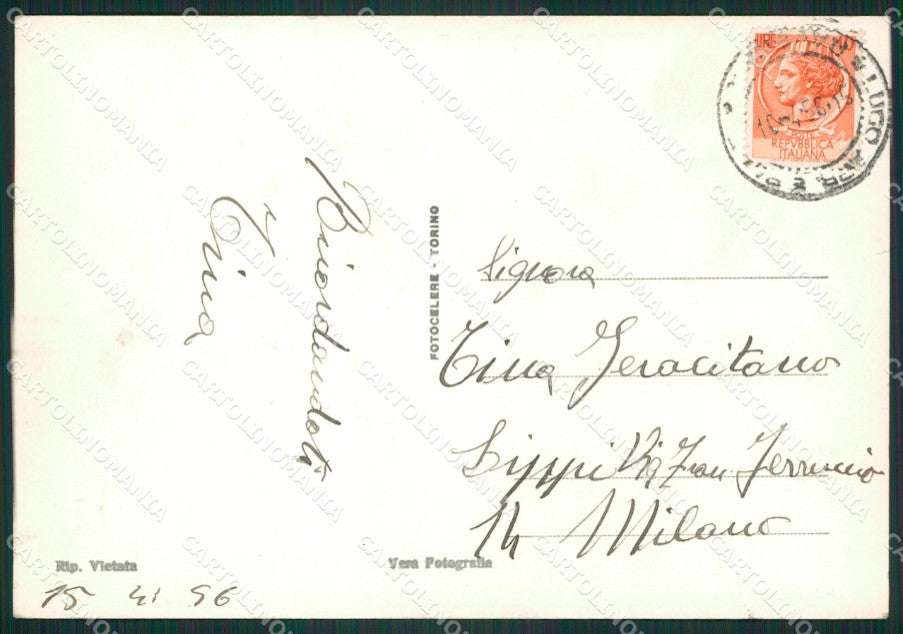 Ricordandoti
Tina
FOTOCELERE - TORINO
LIRE
POSTE
REPVBBLICA
ITALIANA
LUGO
Signora
Tina Geracitano
Lippi Via Fran Ferruccio
14 Milano
Rip. Vietata
Vera Fotografia
15 4 56
CARTOLINOMANIA